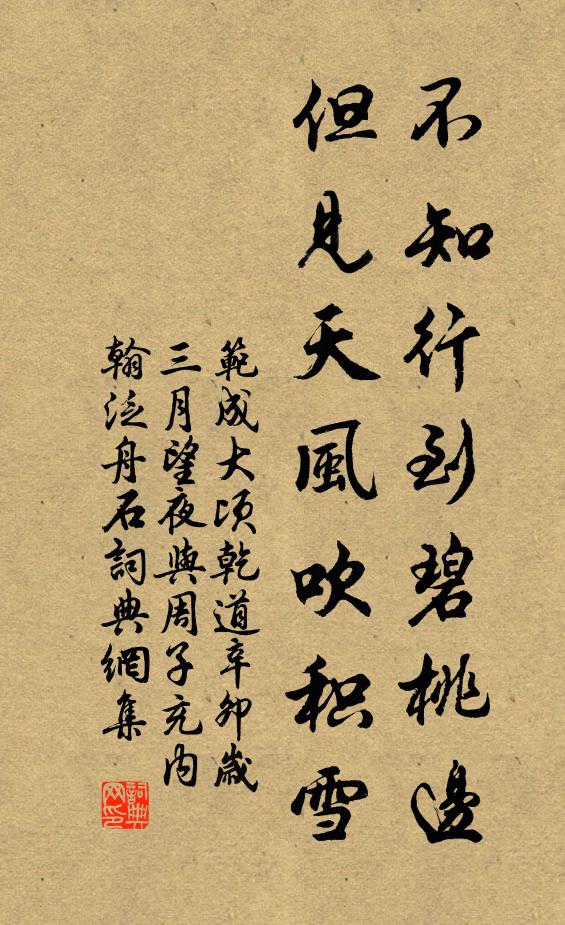 不知行到碧桃邊
但見天風吹积雪
範成大頃乾道辛卯歲
三月望夜與周子充内
翰泛舟石詞典網集
詞典
网印